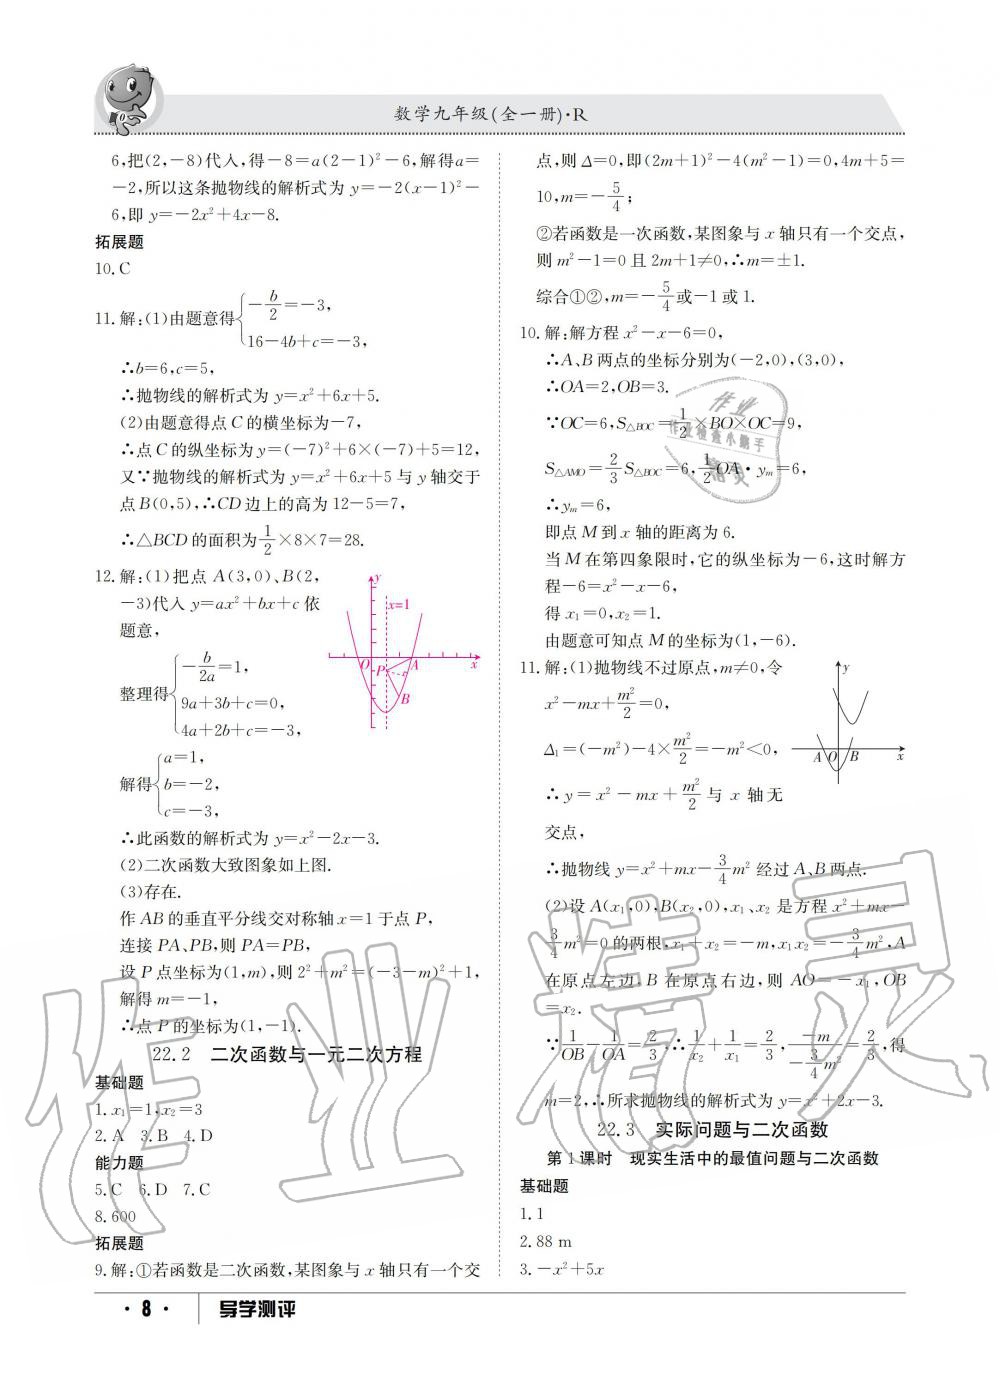 数学九年级(全一册)·R
6,把(2,-8)代入,得-8=a(2-1)²-6,解得a=
-2,所以这条抛物线的解析式为 y=-2(x-1)²-
6,即 y=-2x²+4x-8.
拓展题
10.C
11.解:(1)由题意得{-b/2=-3,
16-4b+c=-3,
∴b=6,c=5,
∴抛物线的解析式为 y=x²+6x+5.
(2)由题意得点 C 的横坐标为-7,
∴点 C 的纵坐标为 y=(-7)²+6×(-7)+5=12,
又∵抛物线的解析式为 y=x²+6x+5 与 y 轴交于
点 B(0,5),∴CD 边上的高为 12-5=7,
∴△BCD 的面积为1/2×8×7=28.
12.解:(1)把点 A(3,0)、B(2,
-3)代入 y=ax²+bx+c 依
题意,
整理得{-b/2a=1,
9a+3b+c=0,
4a+2b+c=-3,
解得{a=1,
b=-2,
c=-3,
y
x=1
O
P
A
x
B
∴此函数的解析式为 y=x²-2x-3.
(2)二次函数大致图象如上图.
(3)存在.
作 AB 的垂直平分线交对称轴 x=1 于点 P,
连接 PA、PB,则 PA=PB,
设 P 点坐标为(1,m),则 2²+m²=(-3-m)²+1,
解得 m=-1,
∴点 P 的坐标为(1,-1).
22.2 二次函数与一元二次方程
基础题
1.x₁=1,x₂=3
2.A 3.B 4.D
能力题
5.C 6.D 7.C
8.600
拓展题
9.解:①若函数是二次函数,某图象与 x 轴只有一个交
点,则 Δ=0,即(2m+1)²-4(m²-1)=0,4m+5=
10,m=-5/4;
②若函数是一次函数,某图象与 x 轴只有一个交点,
则 m²-1=0 且 2m+1≠0,∴m=±1.
综合①②,m=-5/4或-1 或 1.
10.解:解方程 x²-x-6=0,
∴A、B 两点的坐标分别为(-2,0),(3,0),
∴OA=2,OB=3.
∵OC=6,S△BOC=1/2×BO×OC=9,
S△AMO=2/3S△BOC=6,1/2OA·yₘ=6,
∴yₘ=6,
即点 M 到 x 轴的距离为 6.
当 M 在第四象限时,它的纵坐标为-6,这时解方
程-6=x²-x-6,
得 x₁=0,x₂=1.
由题意可知点 M 的坐标为(1,-6).
11.解:(1)抛物线不过原点,m≠0,令
x²-mx+m²/2=0,
Δ₁=(-m²)-4×m²/2=-m²<0,
∴y=x²-mx+m²/2与 x 轴无
交点,
y
A O B x
∴抛物线 y=x²+mx-3/4m² 经过 A、B 两点.
(2)设 A(x₁,0),B(x₂,0),x₁、x₂ 是方程 x²+mx-
3/4m²=0 的两根,x₁+x₂=-m,x₁x₂=-3/4m²,A
在原点左边,B 在原点右边,则 AO=-x₁,OB
=x₂.
∵1/OB-1/OA=2/3,∴1/x₂+1/x₁=2/3,-m/-3/4m²=2/3,得
m=2,∴所求抛物线的解析式为 y=x²+2x-3.
22.3 实际问题与二次函数
第 1 课时 现实生活中的最值问题与二次函数
基础题
1.1
2.88 m
3.-x²+5x
·8· 导学测评
作业精灵